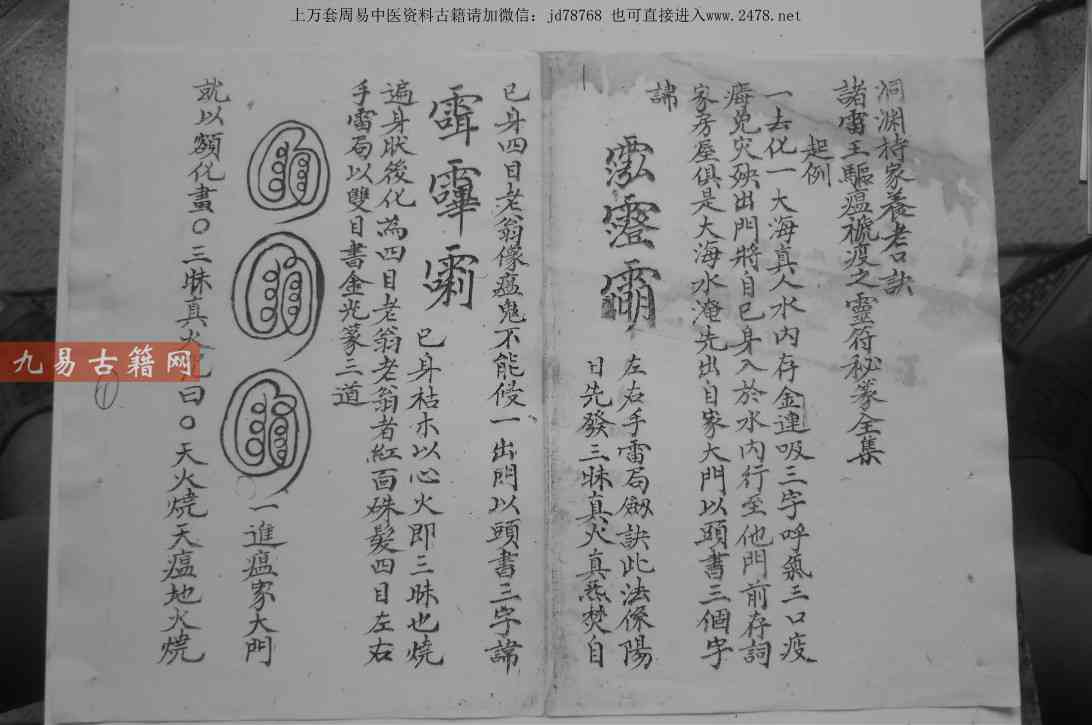 上万套周易中医资料古籍请加微信：jd78768 也可直接进入www.2478.net
洞渊持家養老口訣
諸雷王驅瘟禠疫之靈符秘篆全集
起例
一去化一大海真人水内存金連吸三字呼氣三口疫
癦免灾殃出門將自己身入於水内行至他門前存詞
家房屋俱是大海水淹先出自家大門以頭書三個字
諱
左右手雷局劍訣此法係陽
日先發三昧真火真炁焚自
已身四目老翁像瘟鬼不能侵一出門以頭書三字諱
已身枯木以心火即三昧也燒
遍身狀後化為四目老翁老翁者紅面硃髮四目左右
手雷局以雙目書金光篆三道
一進瘟家大門
就以額化畫〇三昧真火 曰〇天火燒天瘟地火燒
九易古籍网
①